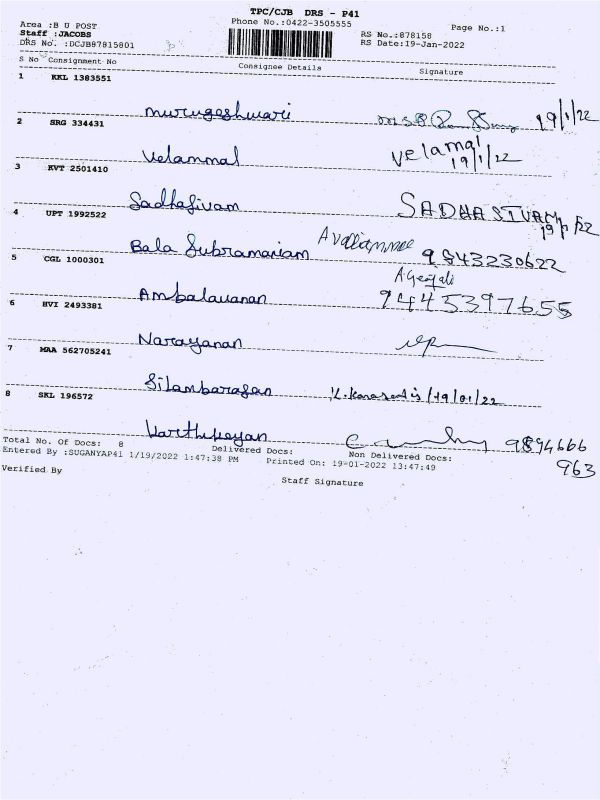 TPC/CJB DRS - P41
Area :B U POST Phone No.:0422-3505555 Page No.:1
Staff :JACOBS RS No.:878158
DRS No. :DCJB87815801 RS Date:19-Jan-2022
S No Consignment No Consignee Details Signature
1 KKL 1383551
murugeshwari 19/1/22
2 SRG 334431
Velammal velamal
19/1/22
3 KVT 2501410
Sadhasivam SADHASIVAM
4 UPT 1992522
Bala Subramaniam 9843230622
5 CGL 1000301
Ambalavanan 9445397655
6 HVI 2493381
Narayanan
7 MAA 562705241
Silambarasan 19/01/22
8 SKL 196572
Karthikeyan 9894666
963
Total No. Of Docs: 8 Delivered Docs: Non Delivered Docs:
Entered By :SUGANYAP41 1/19/2022 1:47:38 PM Printed On: 19-01-2022 13:47:49
Verified By Staff Signature